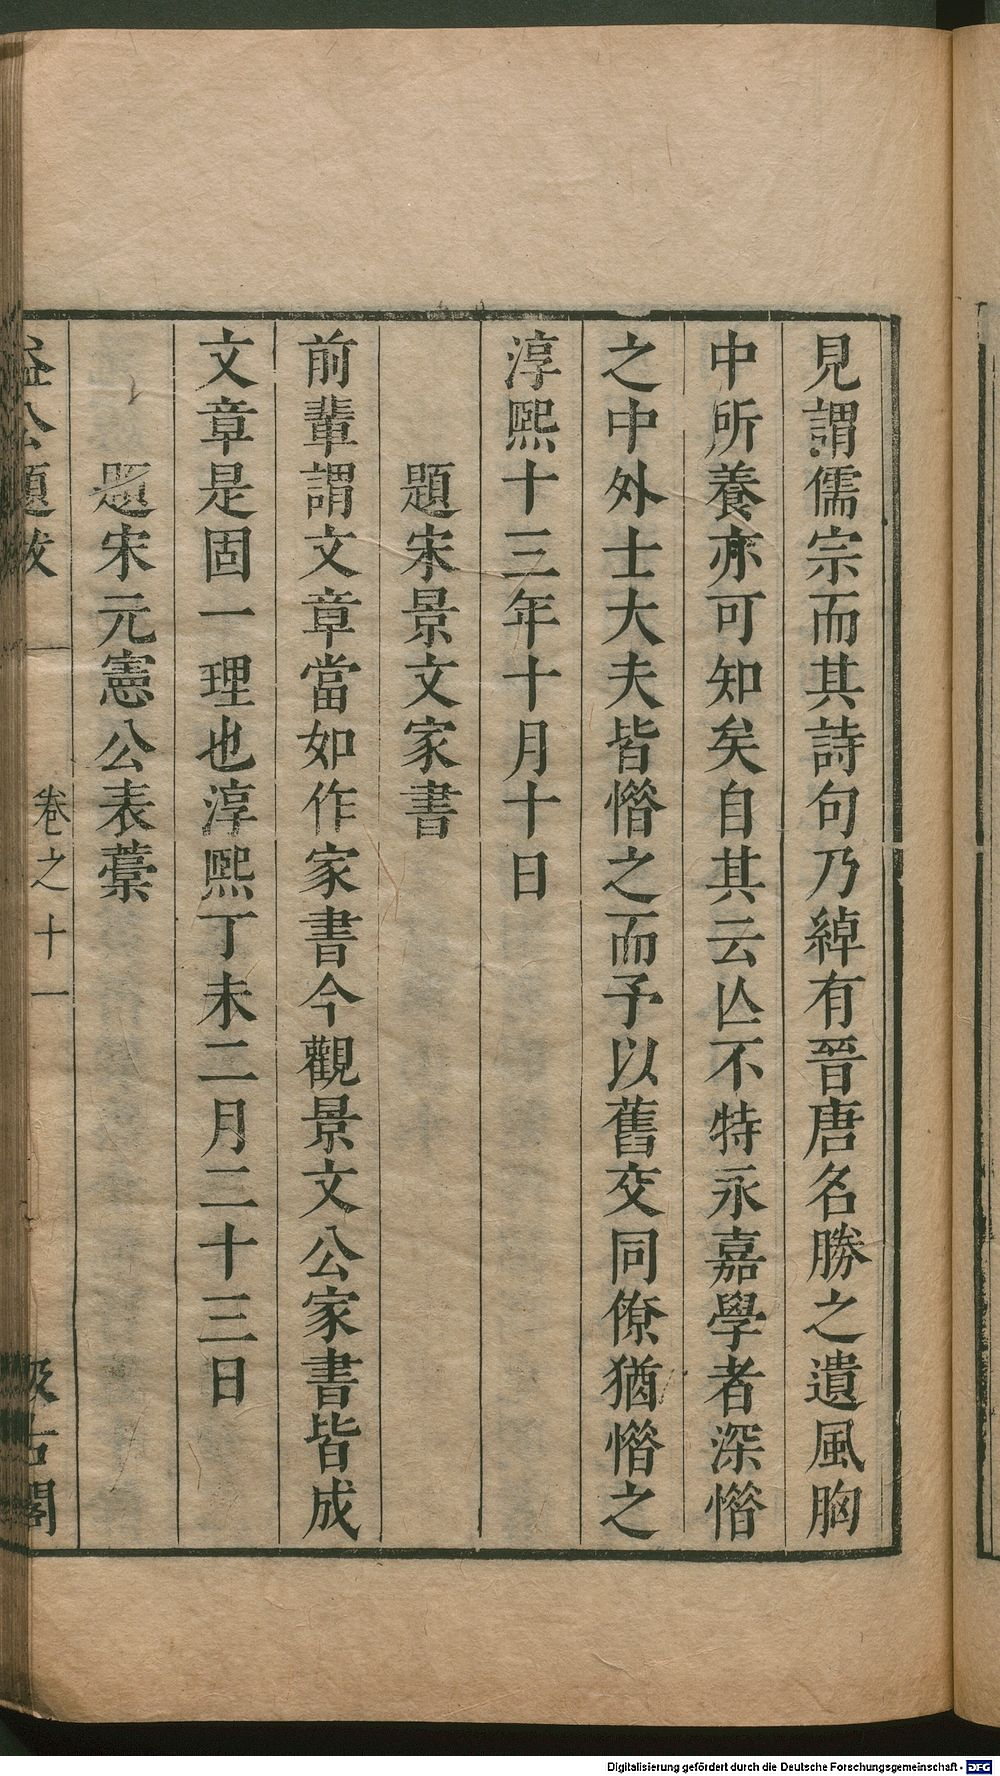 見謂儒宗而其詩句乃綽有晉唐名勝之遺風胸
中所養亦可知矣自其云亾不特永嘉學者深惜
之中外士大夫皆惜之而予以舊交同僚猶惜之
淳熙十三年十月十日
題宋景文家書
前輩謂文章當如作家書今觀景文公家書皆成
文章是固一理也淳熙丁未二月二十三日
題宋元憲公表藁
益公題跋 卷之十一 汲古閣
Digitalisierung gefördert durch die Deutsche Forschungsgemeinschaft - DFG